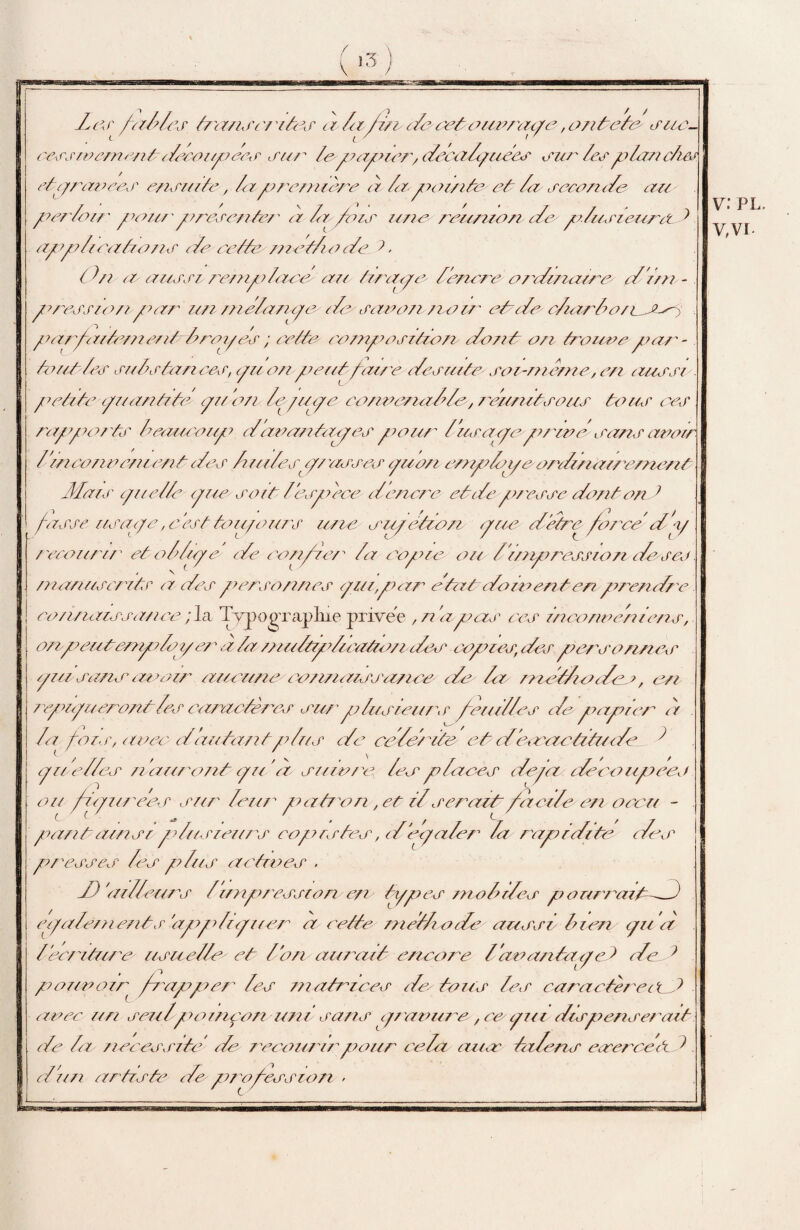 ( 13 )
Les fables transcrites à la fin de cet ouvrage, ont été suc-
cessivement découpées sur le papier, décalquées sur les planches
et gravées ensuite, la première à la pointe et la seconde au
perloir pour présenter à la fois une réunion de plusieurs
applications de cette méthode.
On a aussi remplacé au tirage l'encre ordinaire d'im-
pression par un mélange de savon noir et de charbon
parfaitement broyés ; cette composition dont on trouve par-
tout les substances, qu'on peut faire de suite soi-même, en aussi
petite quantité qu'on le juge convenable, réunit sous tous ces
rapports beaucoup d'avantages pour l'usage privé sans avoir
l'inconvénient des huiles grasses qu'on employe ordinairement
Mais quelle que soit l'espèce d'encre et de presse dont on
fasse usage, c'est toujours une sujétion que d'être forcé d'y
recourir et obligé de confier la copie ou l'impression de ses
manuscrits à des personnes qui, par état doivent en prendre
connaissance ; la Typographie privée, n'a pas ces inconvéniens,
on peut employer à la multiplication des copies, des personnes
qui sans avoir aucune connaissance de la méthode, en
repiqueront les caractères sur plusieurs feuilles de papier à
la fois, avec d'autant plus de célérité et d'exactitude
qu'elles n'auront qu'à suivre les places déjà découpées
ou figurées sur leur patron, et il serait facile en occu-
pant ainsi plusieurs copistes, d'égaler la rapidité des
presses les plus actives.
D'ailleurs l'impression en types mobiles pourrait
également s'appliquer à cette méthode aussi bien qu'à
l'écriture usuelle et l'on aurait encore l'avantage de
pouvoir frapper les matrices de tous les caractères
avec un seul poinçon uni sans gravure, ce qui dispenserait
de la nécessité de recourir pour cela aux talens exercés
d'un artiste de profession.
V: PL.
V, VI.